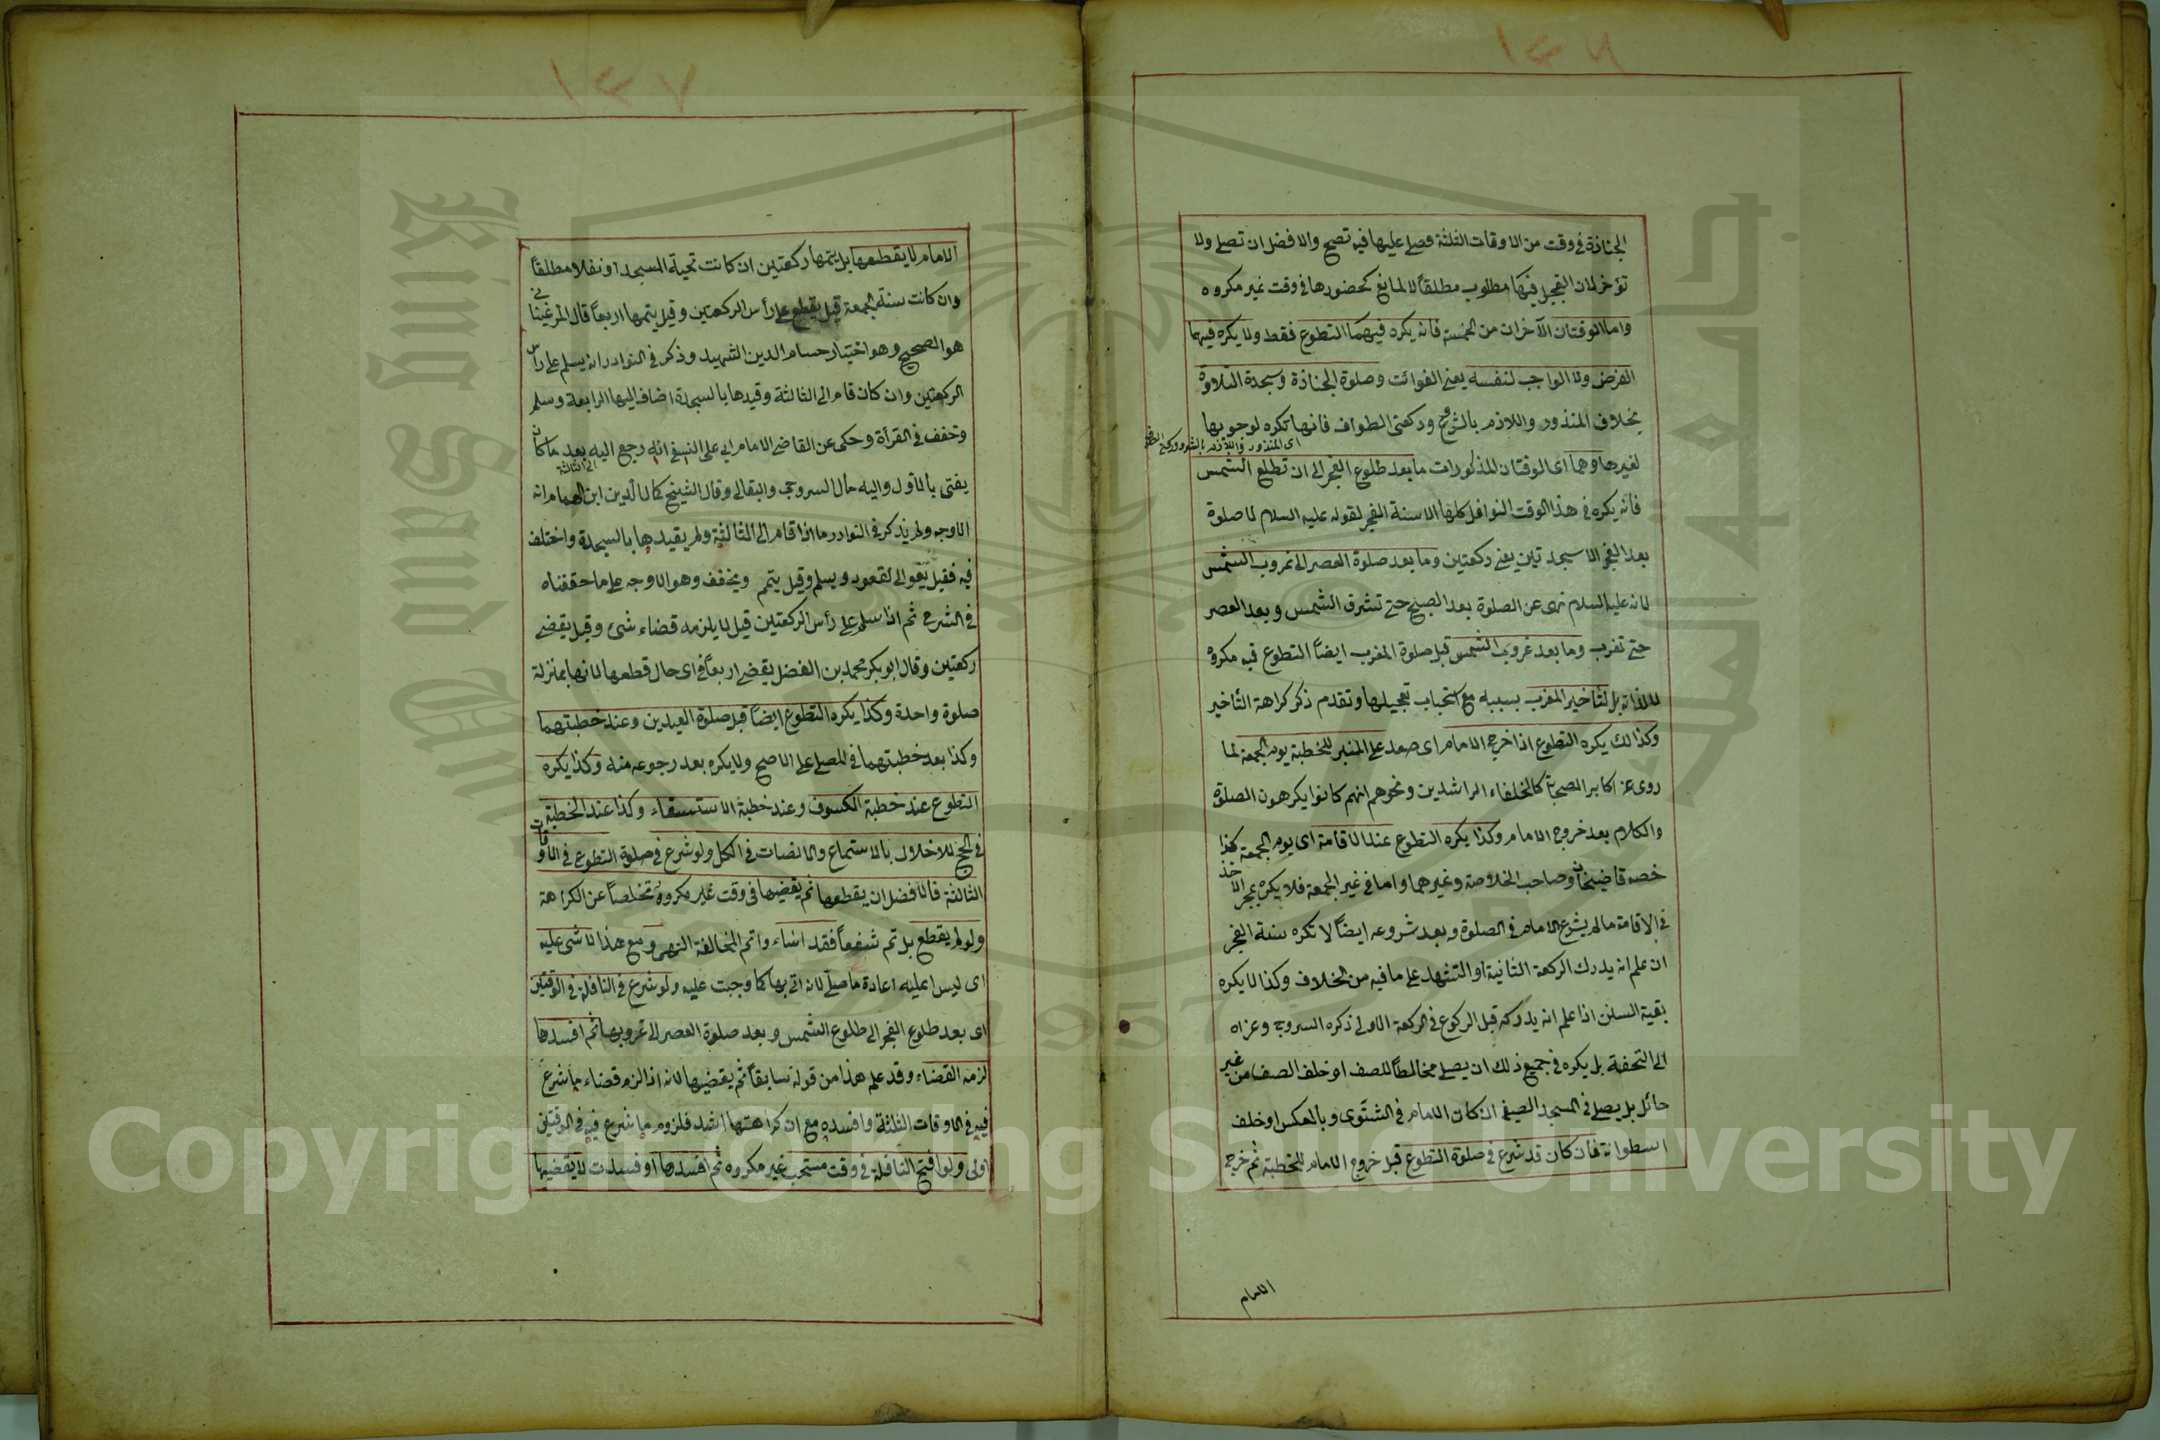 الجنازة في وقت من الاوقات الثلثة وصلى عليها فيه تصح والافضل ان تصلى ولا
تؤخر لان التعجيل فيها مطلوب مطلقاً لا لمانع كحضورها في وقت غير مكروه
واما الوقتان الآخران من الخمسة فانه يكره فيهما التطوع فقط ولا يكره فيهما
الفرض ولا الواجب لنفسه يعني الفوائت وصلوة الجنازة وسجدة التلاوة
بخلاف المنذور واللازم بالشروع وركعتى الطواف فانها تكره لوجوبها
لغيرها وهما اى الوقتان المذكورات ما بعد طلوع الفجر الى ان تطلع الشمس
فانه يكره في هذا الوقت النوافل كلها الا سنة الفجر لقوله عليه السلام لا صلوة
بعد الفجر الا سجدتين يعني ركعتين وما بعد صلوة العصر الى غروب الشمس
لانه عليه السلام نهى عن الصلوة بعد الصبح حتى تشرق الشمس وبعد العصر
حتى تغرب وما بعد غروب الشمس قبل صلوة المغرب ايضاً التطوع فيه مكروه
لا لذاته بل لتأخير المغرب بسببه مع استحباب تعجيلها وتقدم ذكر كراهة التأخير
وكذا لك يكره التطوع اذا خرج الامام اى صعد على المنبر للخطبة يوم الجمعة لما
روى عن اكابر الصحابة كالخلفاء الراشدين ونحوهم انهم كانوا يكرهون الصلوة
والكلام بعد خروج الامام وكذا يكره التطوع عند الاقامة اى يوم الجمعة كذا
خصه قاضيخان وصاحب الخلاصة وغيرهما واما في غير الجمعة فلا يكره بمجرد الاخذ
في الاقامة ما لم يشرع الامام في الصلوة وبعد شروعه ايضاً لا تكره سنة الفجر
ان علم انه يدرك الركعة الثانية او التشهد على ما فيه من الخلاف وكذا لا يكره
بقية السنن اذا علم انه يدركه قبل الركوع في الركعة الاولى ذكره السروجي وعزاه
الى التحفة بل يكره في جميع ذلك ان يصلى مخالطاً للصف او خلف الصف من غير
حائل بل يصلى في المسجد الصيفي ان كان الامام في الشتوى وبالعكس او خلف
اسطوانة فان كان قد شرع في صلوة التطوع قبل خروج الامام للخطبة ثم خرج
الامام
١٣٧
الامام لا يقطعها بل يتمها ركعتين ان كانت تحية المسجد او نفلا مطلقاً
وان كانت سنة الجمعة قيل يقطع على رأس الركعتين وقيل يتمها اربعاً قال المرغيناني
هو الصحيح وهو اختيار حسام الدين الشهيد وذكر في النوادر انه يسلم على رأس
الركعتين وان كان قام الى الثالثة وقيدها بالسجدة اضاف اليها الرابعة وسلم
وخفف في القرأة وحكى عن القاضي الامام ابي على النسفي انه رجع اليه بعد ما كان
يفتى بالاول واليه مال السروجي والبقالى وقال الشيخ كمال الدين ابن الهمام انه
الاوجه ولم يذكر في النوادر ما اذا قام الى الثالثة ولم يقيدها بالسجدة واختلف
فيه فقيل يعود الى القعود ويسلم وقيل يتم ويخفف وهو الاوجه على ما حققناه
في الشرح ثم اذا سلم على رأس الركعتين قيل لا يلزمه قضاء شئ وقيل يقضى
ركعتين وقال ابو بكر محمد بن الفضل يقضى اربعاً في اى حال قطعها لانها بمنزلة
صلوة واحدة وكذا يكره التطوع ايضاً قبل صلوة العيدين وعند خطبتهما
وكذا بعد خطبتهما في المصلى على الاصح ولا يكره بعد رجوعه منه وكذا يكره
التطوع عند خطبة الكسوف وعند خطبة الاستسقاء وكذا عند الخطبة
في الحج للاخلال بالاستماع والانصات في الكل ولو شرع في صلوة التطوع في الاوقات
الثالثة فالافضل ان يقطعها ثم يقضيها في وقت غير مكروه تخلصاً عن الكراهة
ولو لم يقطع بل تم شفعاً فقد اساء واتم المخالفة النهى ومع هذا لا شئ عليه
اى ليس عليه اعادة ما صلى لانه اتى بها كما وجبت عليه ولو شرع في النافلة في الوقتين
اى بعد طلوع الفجر الى طلوع الشمس وبعد صلوة العصر الى غروبها ثم افسدها
لزمه القضاء وقد علم هذا من قوله سابقاً ثم يقضيها لانه اذا لزم قضاء ما شرع
فيه في الاوقات الثلثة وافسده مع ان كراهتها اشد فلزوم ما شرع فيه في الوقتين
اولى ولو افتتح النافلة في وقت مستحب غير مكروه ثم افسدها او فسدت لا يقضيها
King Saud University
1957
Copyright © King Saud University